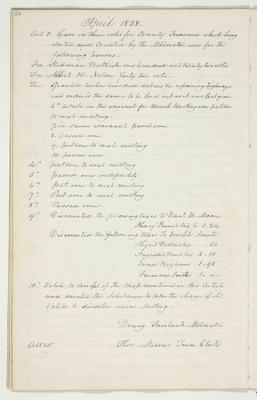 April 1838.
Art 3. Gave in their votes for County Treasurer which being
sorted and Counted by the Moderator were for the
following persons.
For Stedman Buttrick one hundred and twenty two votes
For Albert H. Nelson forty two votes
Granted twelve hundred dollars for repairing highways
and ordered the same to be laid out as last year
6th article in the warrant for March Meeting was put over
to next meeting.
7. in same warrant passed over
8. passed over
9. put over to next meeting
10. passed over
4th put over to next meeting
5th passed over indefinitely
6th put over to next meeting
7th Put over to next meeting
8th Passed over
9th Discounted the following taxes to Danl. W. Moore
Henry tax 1.24
Discounted the following taxes to Joseph Smith
Abijah
Augustus 8.10
James Brigham 1.98
Furmans Smiths
10th Voted to accept of the Map mentioned in this Article
and direct the Selectmen to take the charge of it.
Voted to dissolve said Meeting.
Drury Fairbank Moderator
Attest Town Clerk